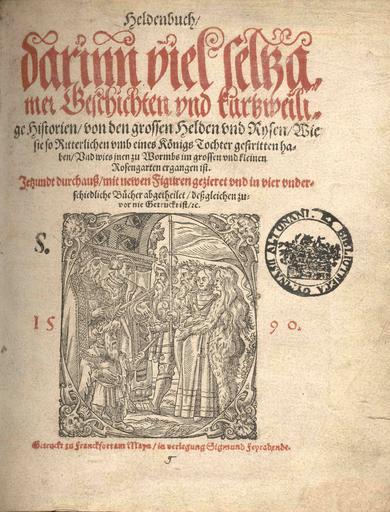 Heldenbuch/
darinn viel seltza-
mer Geschichten vnd kurtzweili-
ge Historien/ von den grossen Helden vnd Rysen/ Wie
sie so Ritterlichen vmb eines Königs Tochter gestritten ha-
ben/ Vnd wies inen zu Wormbs im grossen vnd kleinen
Rosengarten ergangen ist.
Jetzundt durchauß/ mit newen Figuren gezieret vnd in vier vnder-
schiedliche Bücher abgetheilet/ deßgleichen zu-
vor nie Getruckt ist/ ꝛc.
S.
BIBLIOTHECA GYMNASII ALTONANI.
15 90.
Getruckt zu Franckfort am Mayn/ in verlegung Sigmund Feyrabends.